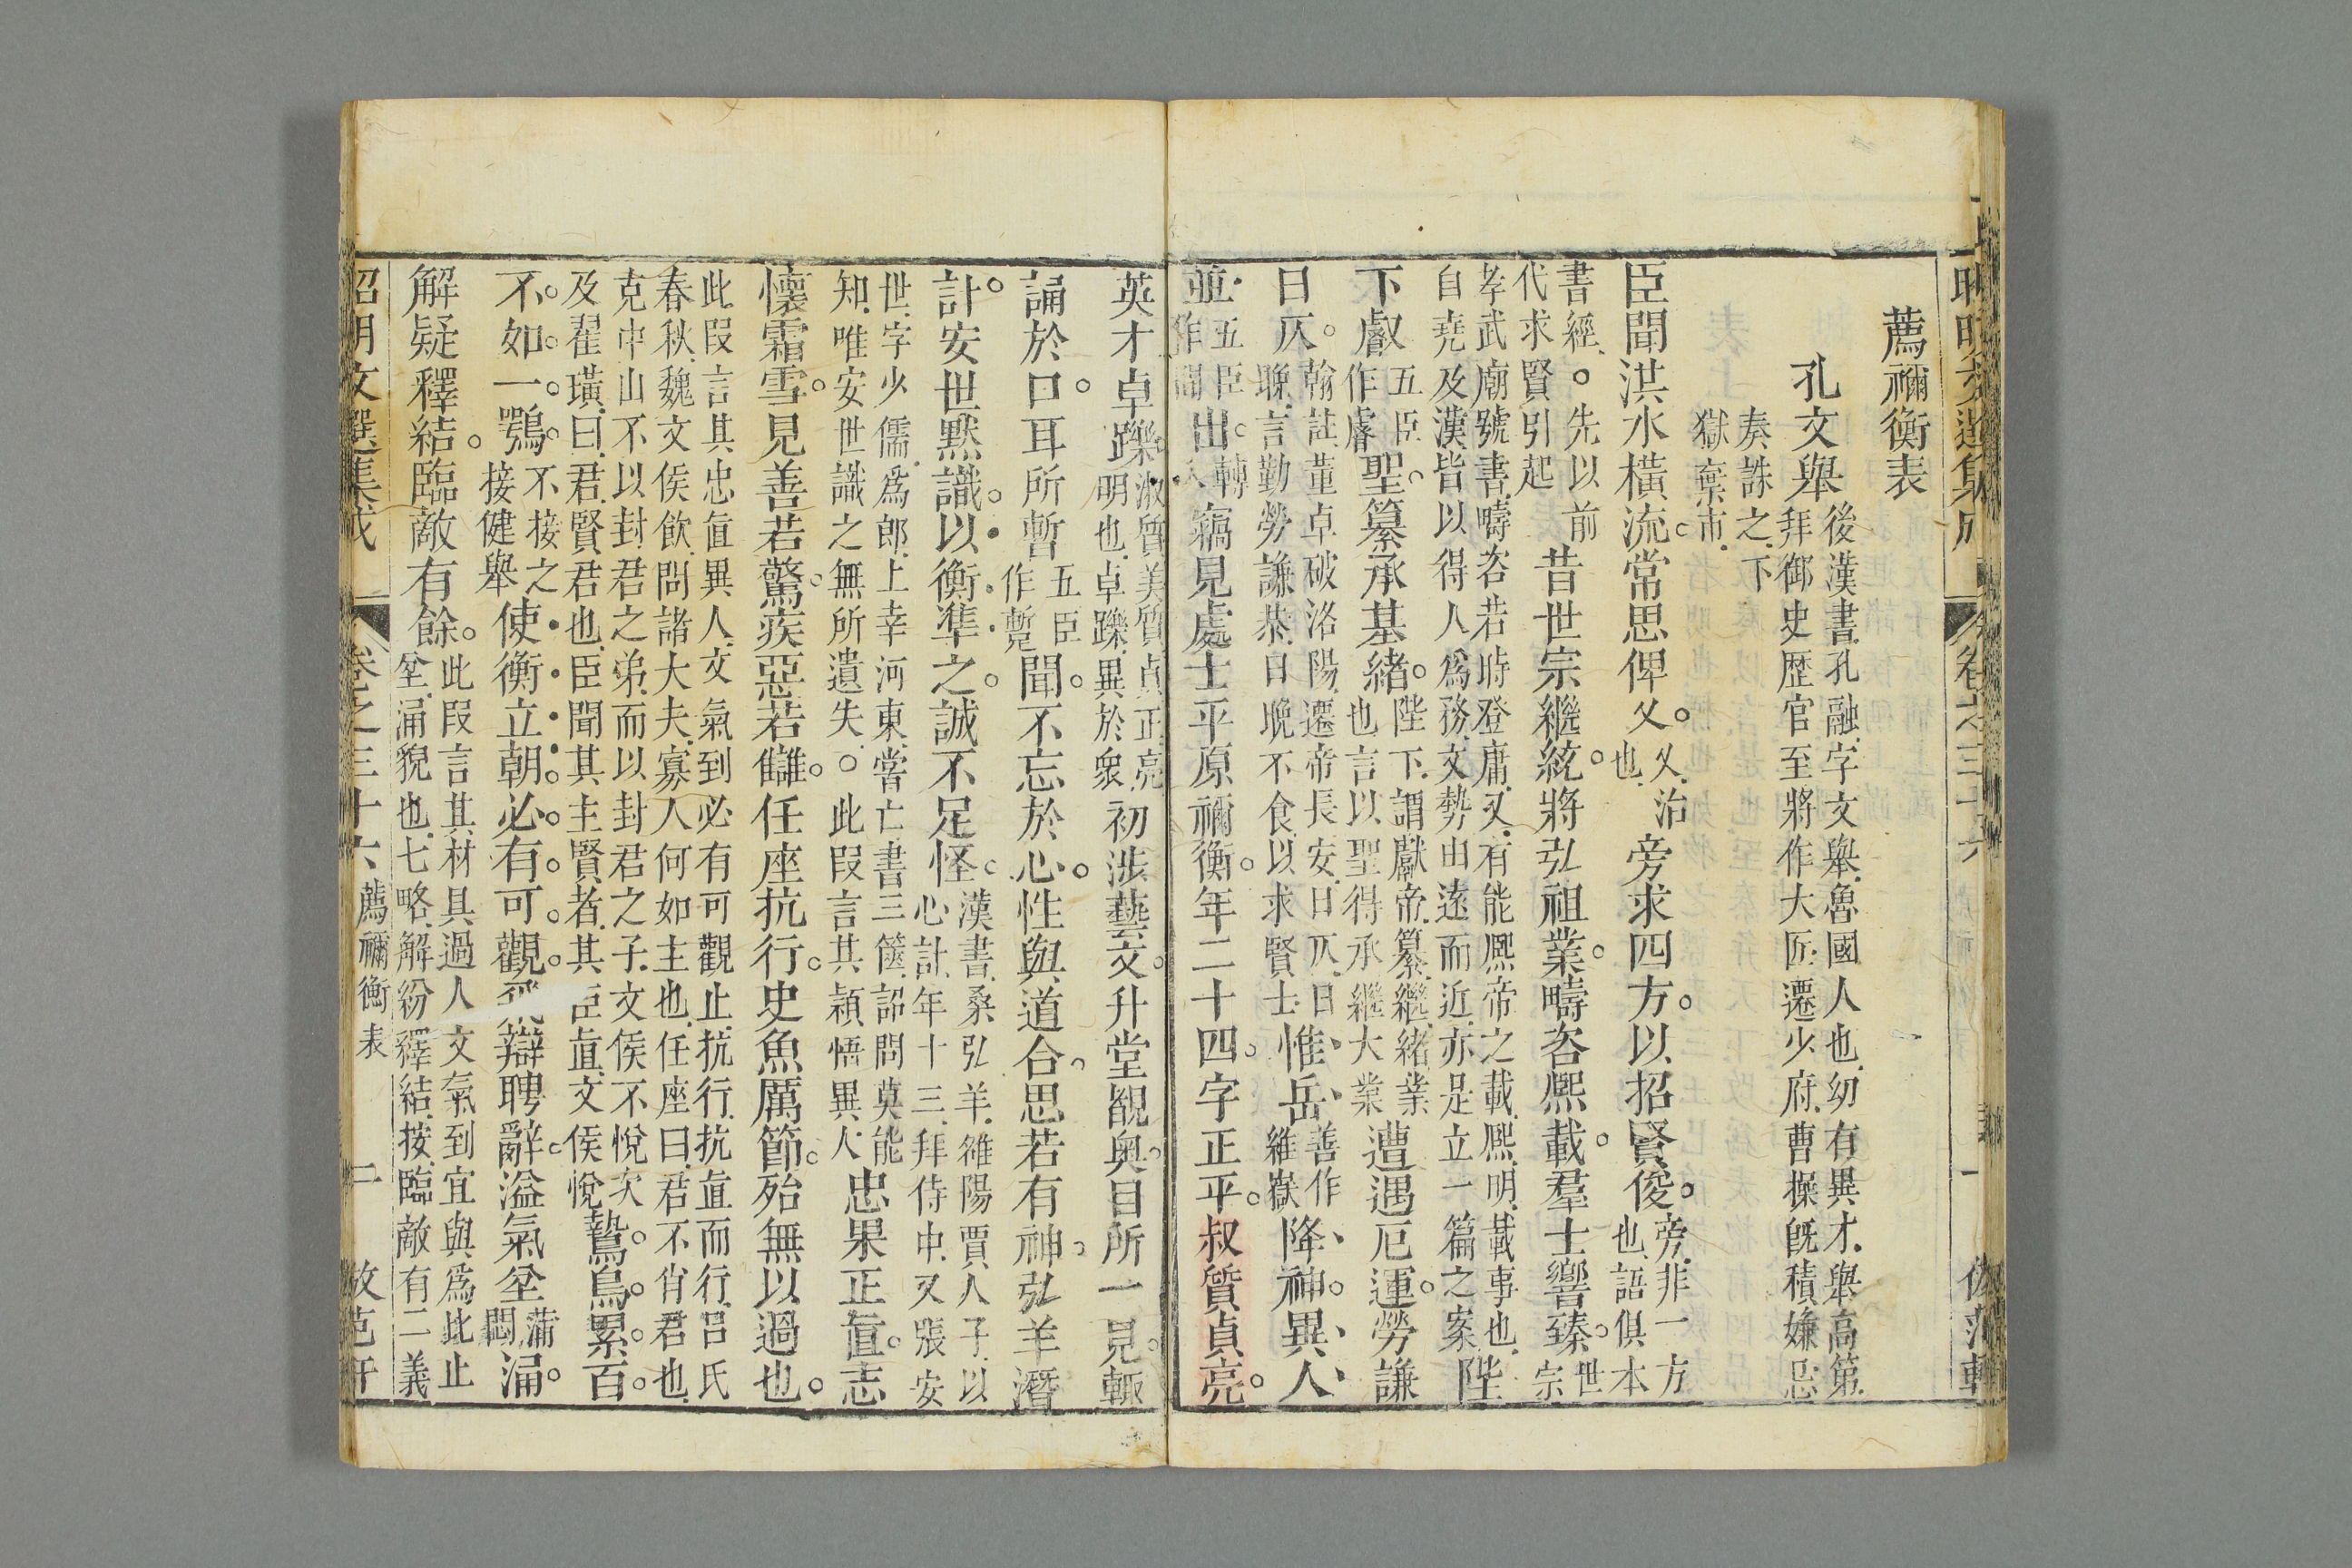 昭明文選集成 卷之三十六 一 倣范軒
薦禰衡表
孔文舉後漢書孔融字文舉魯國人也幼有異才舉高第
拜御史歷官至將作大匠遷少府曹操旣積嫌忌
奏誅之下
獄棄市
臣聞洪水橫流常思俾乂乂治也旁求四方以招賢俊旁非一方也語俱本
書經○先以前代求賢引起昔世宗繼統將弘祖業疇咨熙載羣士響臻世宗
孝武廟號書疇咨若時登庸又有能熙帝之載熙明載事也
自堯及漢皆以得人爲務文勢由遠而近亦是立一篇之案陛
下叡五臣作睿聖纂承基緒陛下謂獻帝纂繼緒業也言以聖得承繼大業遭遇厄運勞謙
日仄翰註董卓破洛陽遷帝長安日仄日言勤勞謙恭日晚不食以求賢士惟岳善作維嶽降神異人
並五臣作間出轉竊見處士平原禰衡年二十四字正平叔質貞亮
英才卓躒淑質美質貞正亮明也卓躒異於衆初涉藝文升堂覩奥目所一見輒
誦於口耳所暫五臣作蹔聞不忘於心性與道合思若有神弘羊潛
計安世黙識以衡準之誠不足怪漢書桑弘羊雒陽賈人子以心計年十三拜侍中又張安
世字少儒爲郎上幸河東嘗亡書三篋詔問莫能
知唯安世識之無所遺失○此叚言其穎悟異人忠果正直志
懷霜雪見善若驚疾惡若讎任座抗行史魚厲節殆無以過也
此叚言其忠直異人文氣到必有可觀止抗行抗直而行呂氏
春秋魏文侯飲問諸大夫寡人何如主也任座曰君不肖君也
克中山不以封君之弟而以封君之子文侯不悅次
及翟璜曰君賢君也臣聞其主賢者其臣直文侯悅鷙鳥累百
不如一鶚不接之接健舉使衡立朝必有可觀飛辯騁辭溢氣坌蒲悶涌
解疑釋結臨敵有餘此叚言其材具過人文氣到宜與爲此止坌涌貌也七略解紛釋結按臨敵有二義
昭明文選集成 卷之三十六 薦禰衡表 二 倣范軒